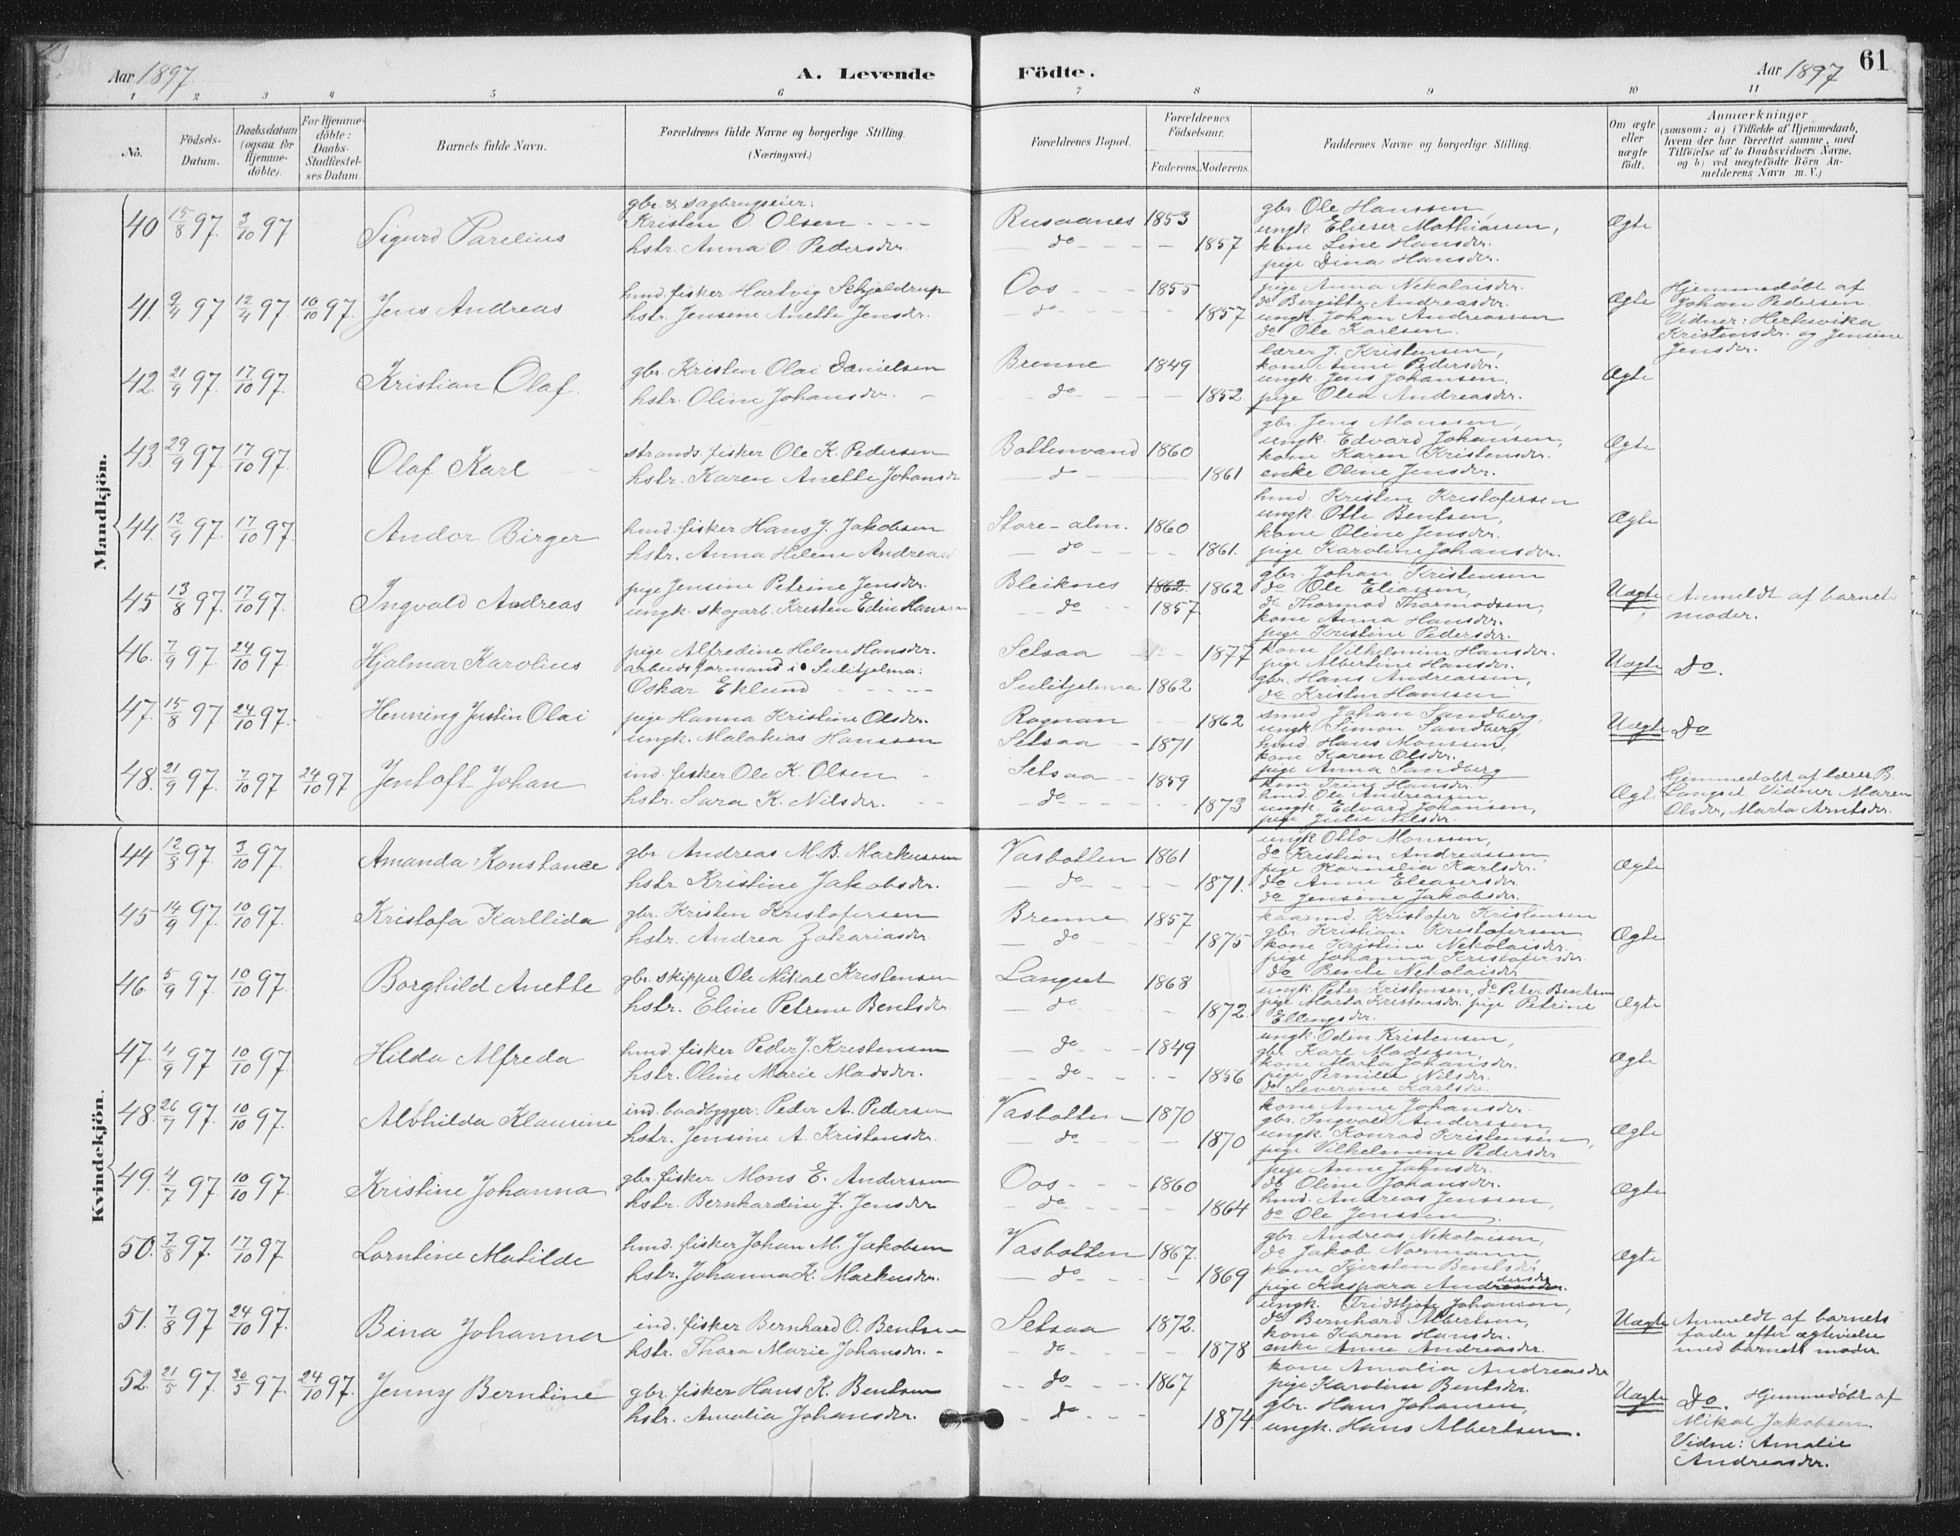 Aar 1897
A. Levende
Födte.
Aar 1897
61
1 2 3 4 5 6 7 8 9 10 11
No.
Födsels-Datum.
Daabsdatum (ogsaa for Hjemme-döbte).
For Hjemme-döbte: Daabs-Stadfæstel-ses Datum.
Barnets fulde Navn.
Forældrenes fulde Navne og borgerlige Stilling. (Næringsvei.)
Forældrenes Bopæl.
Forældrenes Födselsaar.
Faderens. Moderens.
Faddernes Navne og borgerlige Stilling.
Om ægte eller uægte födt.
Anmærkninger
(saasom: a) i Tilfælde af Hjemmedaab, hvem der har forrettet samme, med Tilföielse af to Daabsvidners Navne, og b) ved uægtefödte Börn An-melderens Navn m. V.)
Mandkjön.
40 15/8 97. 3/10 97 Sigurd Parelius
gbr. & sagbrugseier:
Kristen O Olsen
hstr. Anna O. Pedersdr.
Rusaanes 1853
do 1857
gbr Ole Hanssen,
ungk Elieser Mathiassen,
kone Line Hansdr.
pige Dina Hansdr.
Ægte
41. 9/4 97 12/4 97 10/10 97. Jens Andreas
hmd. fisker Hartvig Schjeldrup
hstr. Jensine Anette Jensdr.
Oos 1855
do 1857
pige Anna Nikolaisdr.
do Bergitte Andreasdr.
ungk. Johan Andreassen
do Ole Karlsen.
Ægte
Hjemmedøbt af
Johan Pedersen
Vidner:
Kristensdr. og Jensine
Jensdr.
42. 21/9 97. 17/10 97. Kristian Olaf.
gbr. Kristen Olai Danielsen
hstr. Oline Johansdr.
Brenne 1849
do 1852.
lærer J. Kristensen,
kone Anne Pedersdr.
ungk Jens Johansen.
pige Olea Andreasdr.
Ægte
43 29/9 97. 17/10 97. Olaf Karl
strands. fisker Ole K. Pedersen
hstr. Karen Anette Johansdr
Bottenvand 1860
do 1861
gbr Jens Monssen,
ungk. Edvard Johansen,
kone Karen Kristensdr.
enke Oline Jensdr.
Ægte
44. 12/9 97 17/10 97. Andor Birger
hmd. fisker Hans J. Jakobsen
hstr. Anna Helene Andreasd
Store-alm. 1860
do 1861.
hmd Kristen Kristofersen
ungk. Otto Bentsen,
kone Oline Jensdr.
pige Karoline Johansdr.
Ægte
45 13/8 97. 17/10 97. Ingvald Andreas
pige Jensine Petrine Jensdr.
ungk. skogarb. Kristen Edin Hanssen
Bleiknes 1862. 1862
do 1857.
gbr. Johan Kristensen
do Ole Eliassen,
do Thormod Thormodsen,
kone Anna Hansdr.
pige Kristine Pedersdr.
Uægte
Anmeldt af barnets
moder.
46. 7/9 97. 24/10 97. Hjalmar Karolius
pige Alfredine Helene Hansdr.
arbeidsformand i Sulitjelma:
Oskar Eklund
Setsaa 1877
Sulitjelma 1862
kone Vilhelmine Hansdr.
pige Albertine Hansdr.
gbr. Hans Andreassen,
do Kristen Hanssen
Uægte
Do.
47. 15/8 97 24/10 97. Henning Justin Olai
pige Hanna Kristine Olsdr.
ungk. Malakias Hanssen
Rognan 1862
Setsaa 1871
smed Johan Sandberg,
ungk Simon Sandberg,
hmd. Hans Monssen,
kone Karen Olsdr.
pige Anna Sandberg
Uægte
Do
48. 21/9 97. 7/10 97 24/10 97 Jentoft Johan
ind. fisker Ole K. Olsen
hstr. Sara K. Nilsdr.
Setsaa 1859
do 1873
hmd. Ole Andreassen
ungk. Edvard Johansen,
pige Julie Nilsdr.
Ægt.
Hjemmedøbt af lærer B.
Langset Vidner Maren
Olsdr, Marta Arntsdr.
Kvindekjön.
44 12/8 97. 3/10 97. Amanda Konstance
gbr. Andreas M. B. Markussen
hstr Kristine Jakobsdr.
Vasbotten 1861
do 1871.
ungk Otto Monssen,
do Kristian Andreassen,
pige Kornelia Karlsdr.
do Anne Eleasersdr
do Jensine Jakobsdr.
Ægte
45 14/9 97. 10/10 97. Kristofa Karllida
gbr. Kristen Kristofersen
hstr. Andrea Zakariasdr
Brenne 1857
do 1875
kaarmd. Kristofer Kristensen
gbr. Kristian Kristofersen
kone Kristine Nikolaisdr.
pige Johanna Kristofersdr.
do Bente Nikolaisdr
Ægte
46 5/9 97. 10/10 97. Borghild Anette
gbr. skipper Ole Mikal Kristensen
hstr. Eline Petrine Bentsdr
Langset 1868
do 1872.
ungk Peter Kristensen, do Peter Bentsen
pige Marta Kristensdr. pige Petrine
Ellingsdr.
Ægte
47. 4/9 97 10/10 97. Hilda Alfreda
hmd. fisker Peder J. Kristensen
hstr. Oline Marie Madsdr.
do 1849
do 1856
ungk Odin Kristensen,
gbr. Karl Madssen,
kone Marta Johansdr.
pige Pernille Nilsdr.
do Severine Karlsdr
Ægte
48. 26/7 97. 10/10 97. Alvhilda Klausine
ind. baadbygger. Peder A. Pedersen
hstr. Jensine A. Kristensdr.
Vasbotten 1870
do 1870
kone Anne Johansdr.
gbr. Ingvald Anderssen,
ungk Konrad Kristensen,
pige Vilhelmine Pedersdr
Ægte
49. 4/7 97. 10/10 97. Kristine Johanna
gbr. fisker Mons E. Andersen
hstr. Bernhardine J. Jensdr
Oos 1860
do 1864
pige Anne Johnsdr.
do Oline Johansdr.
hmd. Andreas Jenssen,
do Ole Jenssen.
Ægte
50. 7/8 97. 17/10 97. Lorntine Matilde
hmd. fisker Johan M. Jakobsen
hstr. Johanna K. Markusdr.
Vasbotten 1867.
do 1869
gbr. Andreas Nikolaisen,
do Jakob Normann
kone Kjersten Bentsdr
pige Kaspara
Ægte
51. 7/8 97 24/10 97. Bina Johanna
ind. fisker Bernhard O. Bentsen
hstr. Thora Marie Johansdr.
Setsaa 1872.
do 1878
ungk. Fridthjof Johansen,
do Bernhard Albertsen,
kone Karen Hansdr.
enke Anne Andreasdr.
Uægte
Anmeldt af barnets
fader efter ægtvielse
med barnets moder
52. 21/5 97. 30/5 97. 24/10 97. Jenny Berntine
gbr. fisker Hans K. Bentsen
hstr. Amalia Johansdr.
do 1867
do 1874.
kone Amalia Andreasdr
pige Karoline Bentsdr.
gbr. Hans Johansen,
ungk. Hans Albertsen.
Uægte
Do. Hjemmedøbt af
Mikal Jakobsen.
Vidne: Amalie
Andreasdr.